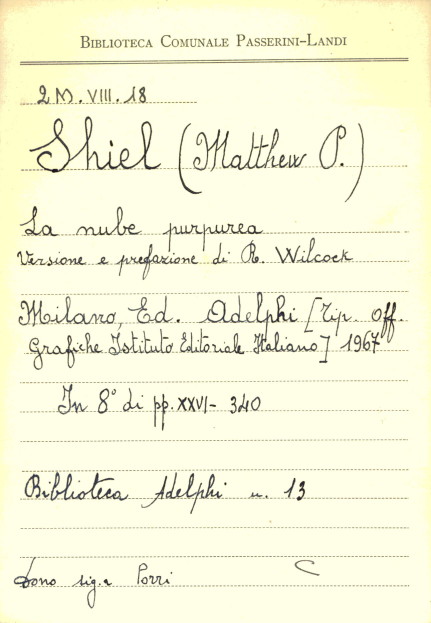 BIBLIOTECA COMUNALE PASSERINI-LANDI
2 M. VIII. 18
Shiel (Matthew P.)
La nube purpurea
Versione e prefazione di R. Wilcock
Milano, Ed. Adelphi [Tip. Off.
Grafiche Istituto Editoriale Italiano] 1967
In 8° di pp. XXVI- 340
Biblioteca Adelphi n. 13
Dono sig.a Porri